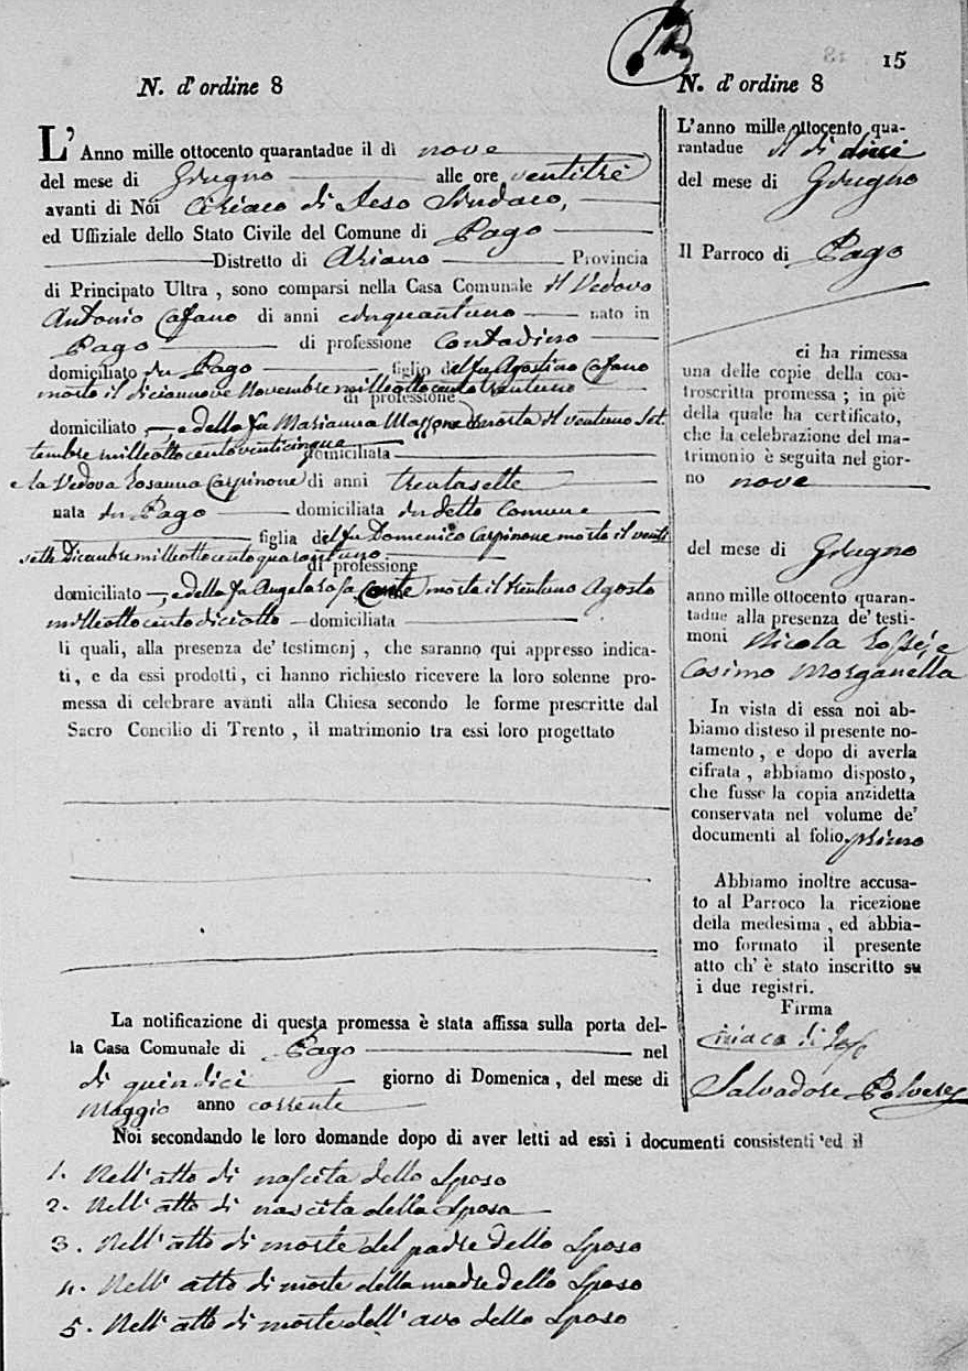 15
N. d' ordine 8
L' Anno mille ottocento quarantadue il dì nove
del mese di Giugno alle ore ventitrè
avanti di Noi Ciriaco di Ieso Sindaco,
ed Uffiziale dello Stato Civile del Comune di Pago
Distretto di Ariano Provincia
di Principato Ultra , sono comparsi nella Casa Comunale il Vedovo
Antonio Cafano di anni cinquantuno nato in
Pago di professione Contadino
domiciliato in Pago figlio del fu Agostino Cafano
morto il diciannove Novembre milleottocento trentuno
di professione
domiciliato , e della fu Marianna Mazzone morta il ventuno Set
tembre milleottocentoventicinque
domiciliata
e la Vedova Rosanna Carpinone di anni trentasette
nata in Pago domiciliata in detto Comune
figlia del fu Domenico Carpinone morto il venti
sette Dicembre milleottocentoquarantuno
di professione
domiciliato , e della fu Angela Rosa Conte morta il trentuno Agosto
milleottocentodiciotto domiciliata
li quali, alla presenza de' testimonj , che saranno qui appresso indica-
ti, e da essi prodotti, ci hanno richiesto ricevere la loro solenne pro-
messa di celebrare avanti alla Chiesa secondo le forme prescritte dal
Sacro Concilio di Trento , il matrimonio tra essi loro progettato
La notificazione di questa promessa è stata affissa sulla porta del-
la Casa Comunale di Pago nel
di quindici giorno di Domenica , del mese di
Maggio anno corrente
Noi secondando le loro domande dopo di aver letti ad essi i documenti consistenti ed il
1. Nell' atto di nascita dello Sposo
2. Nell' atto di nascita della Sposa
3. Nell' atto di morte del padre dello Sposo
4. Nell' atto di morte della madre dello Sposo
5. Nell' atto di morte dell' avo dello Sposo
N. d' ordine 8
L'anno mille ottocento qua-
rantadue il dì dieci
del mese di Giugno
Il Parroco di Pago
ci ha rimessa
una delle copie della con-
troscritta promessa ; in piè
della quale ha certificato,
che la celebrazione del ma-
trimonio è seguita nel gior-
no nove
del mese di Giugno
anno mille ottocento quaran-
tadue alla presenza de' testi-
moni Nicola e
Cosimo Morganella
In vista di essa noi ab-
biamo disteso il presente no-
tamento , e dopo di averla
cifrata , abbiamo disposto,
che fusse la copia anzidetta
conservata nel volume de'
documenti al folio primo
Abbiamo inoltre accusa-
to al Parroco la ricezione
della medesima , ed abbia-
mo formato il presente
atto ch' è stato inscritto su
i due registri.
Firma
Ciriaco di Ieso
Salvadore Polvere